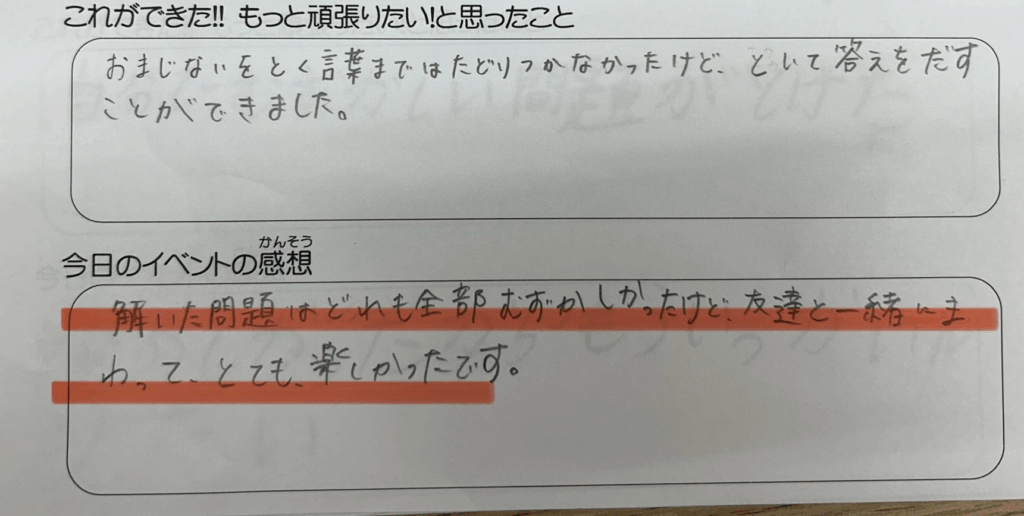 これができた!! もっと頑張りたい!と思ったこと
おまじないをとく言葉まではたどりつかなかったけど、といて答えをだす
ことができました。
かんそう
今日のイベントの感想
解いた問題はどれも全部むずかしかったけど、友達と一緒にま
わって、とても、楽しかったです。